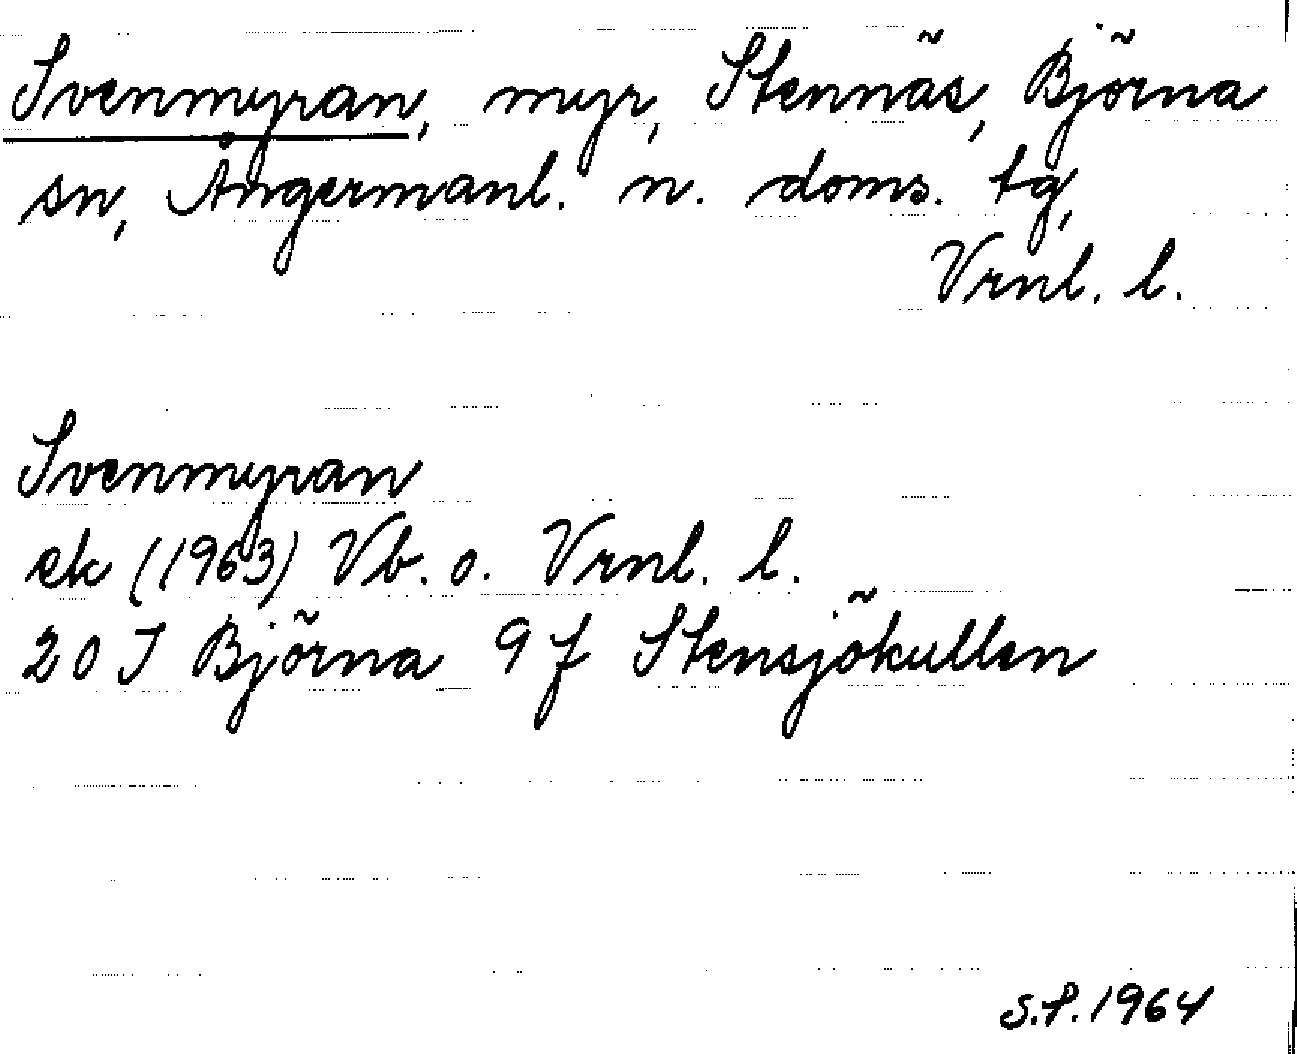 Svenmyran, myr, Stennäs, Björna
sn, Ångermanl. n. doms. tg,
Vrnl. l.
Svenmyran
ek (1963) Vb. o. Vrnl. l.
20 J Björna 9 f Stensjökullen
S.P. 1964